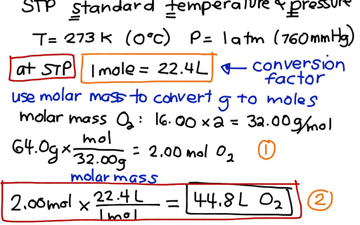 STP Standard Temperature & Pressure
T= 273 K (0°C) P= 1 atm (760 mm Hg)
at STP 1 mole = 22.4 L ← conversion factor
use molar mass to convert g to moles
molar mass O₂: 16.00 x 2 = 32.00 g/mol
64.0g x mol / 32.00g = 2.00 mol O₂ ①
molar mass
2.00 mol x 22.4 L / 1 mol = 44.8 L O₂ ②